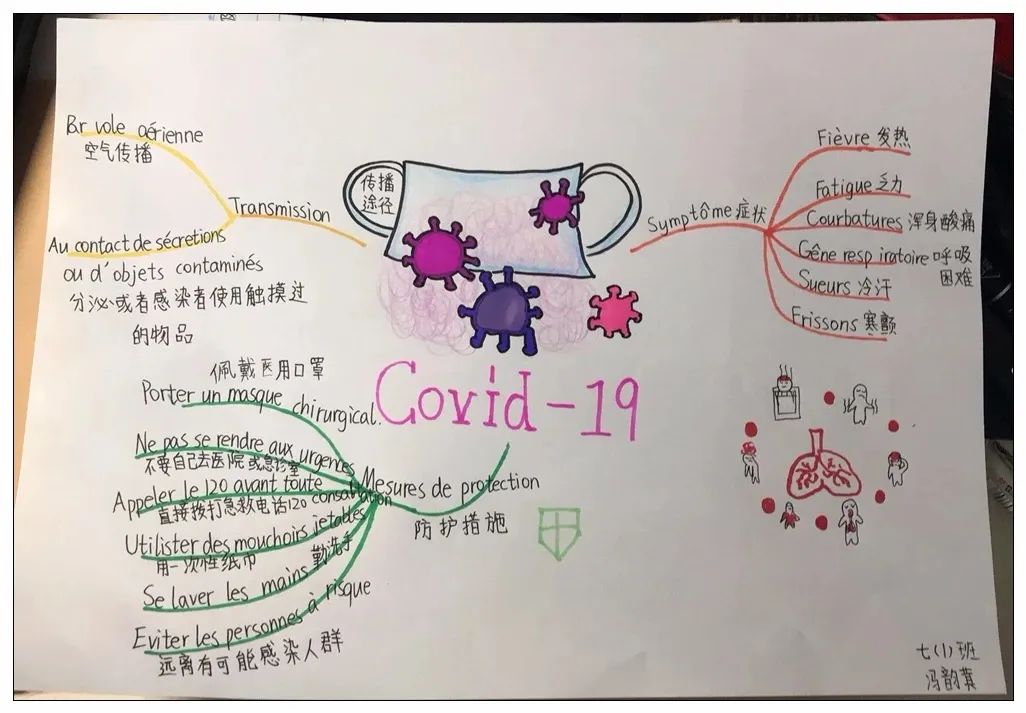 Par voie aérienne
空气传播
Transmission
Au contact de sécretions
ou d'objets contaminés
分泌或者感染者使用触摸过
的物品
传播
途径
Symptôme 症状
Fièvre 发热
Fatigue 乏力
Courbatures 浑身酸痛
Gêne resp iratoire 呼吸
困难
Sueurs 冷汗
Frissons 寒颤
Covid-19
佩戴医用口罩
Porter un masque chirurgical.
Ne pas se rendre aux urgences
不要自己去医院或急诊室
Appeler le 120 avant toute consultation
直接拨打急救电话120
Utilister des mouchoirs jetables
用一次性纸巾
Se laver les mains 勤洗手
Eviter les personnes à risque
远离有可能感染人群
Mesures de protection
防护措施
七(1)班
冯韵蓂